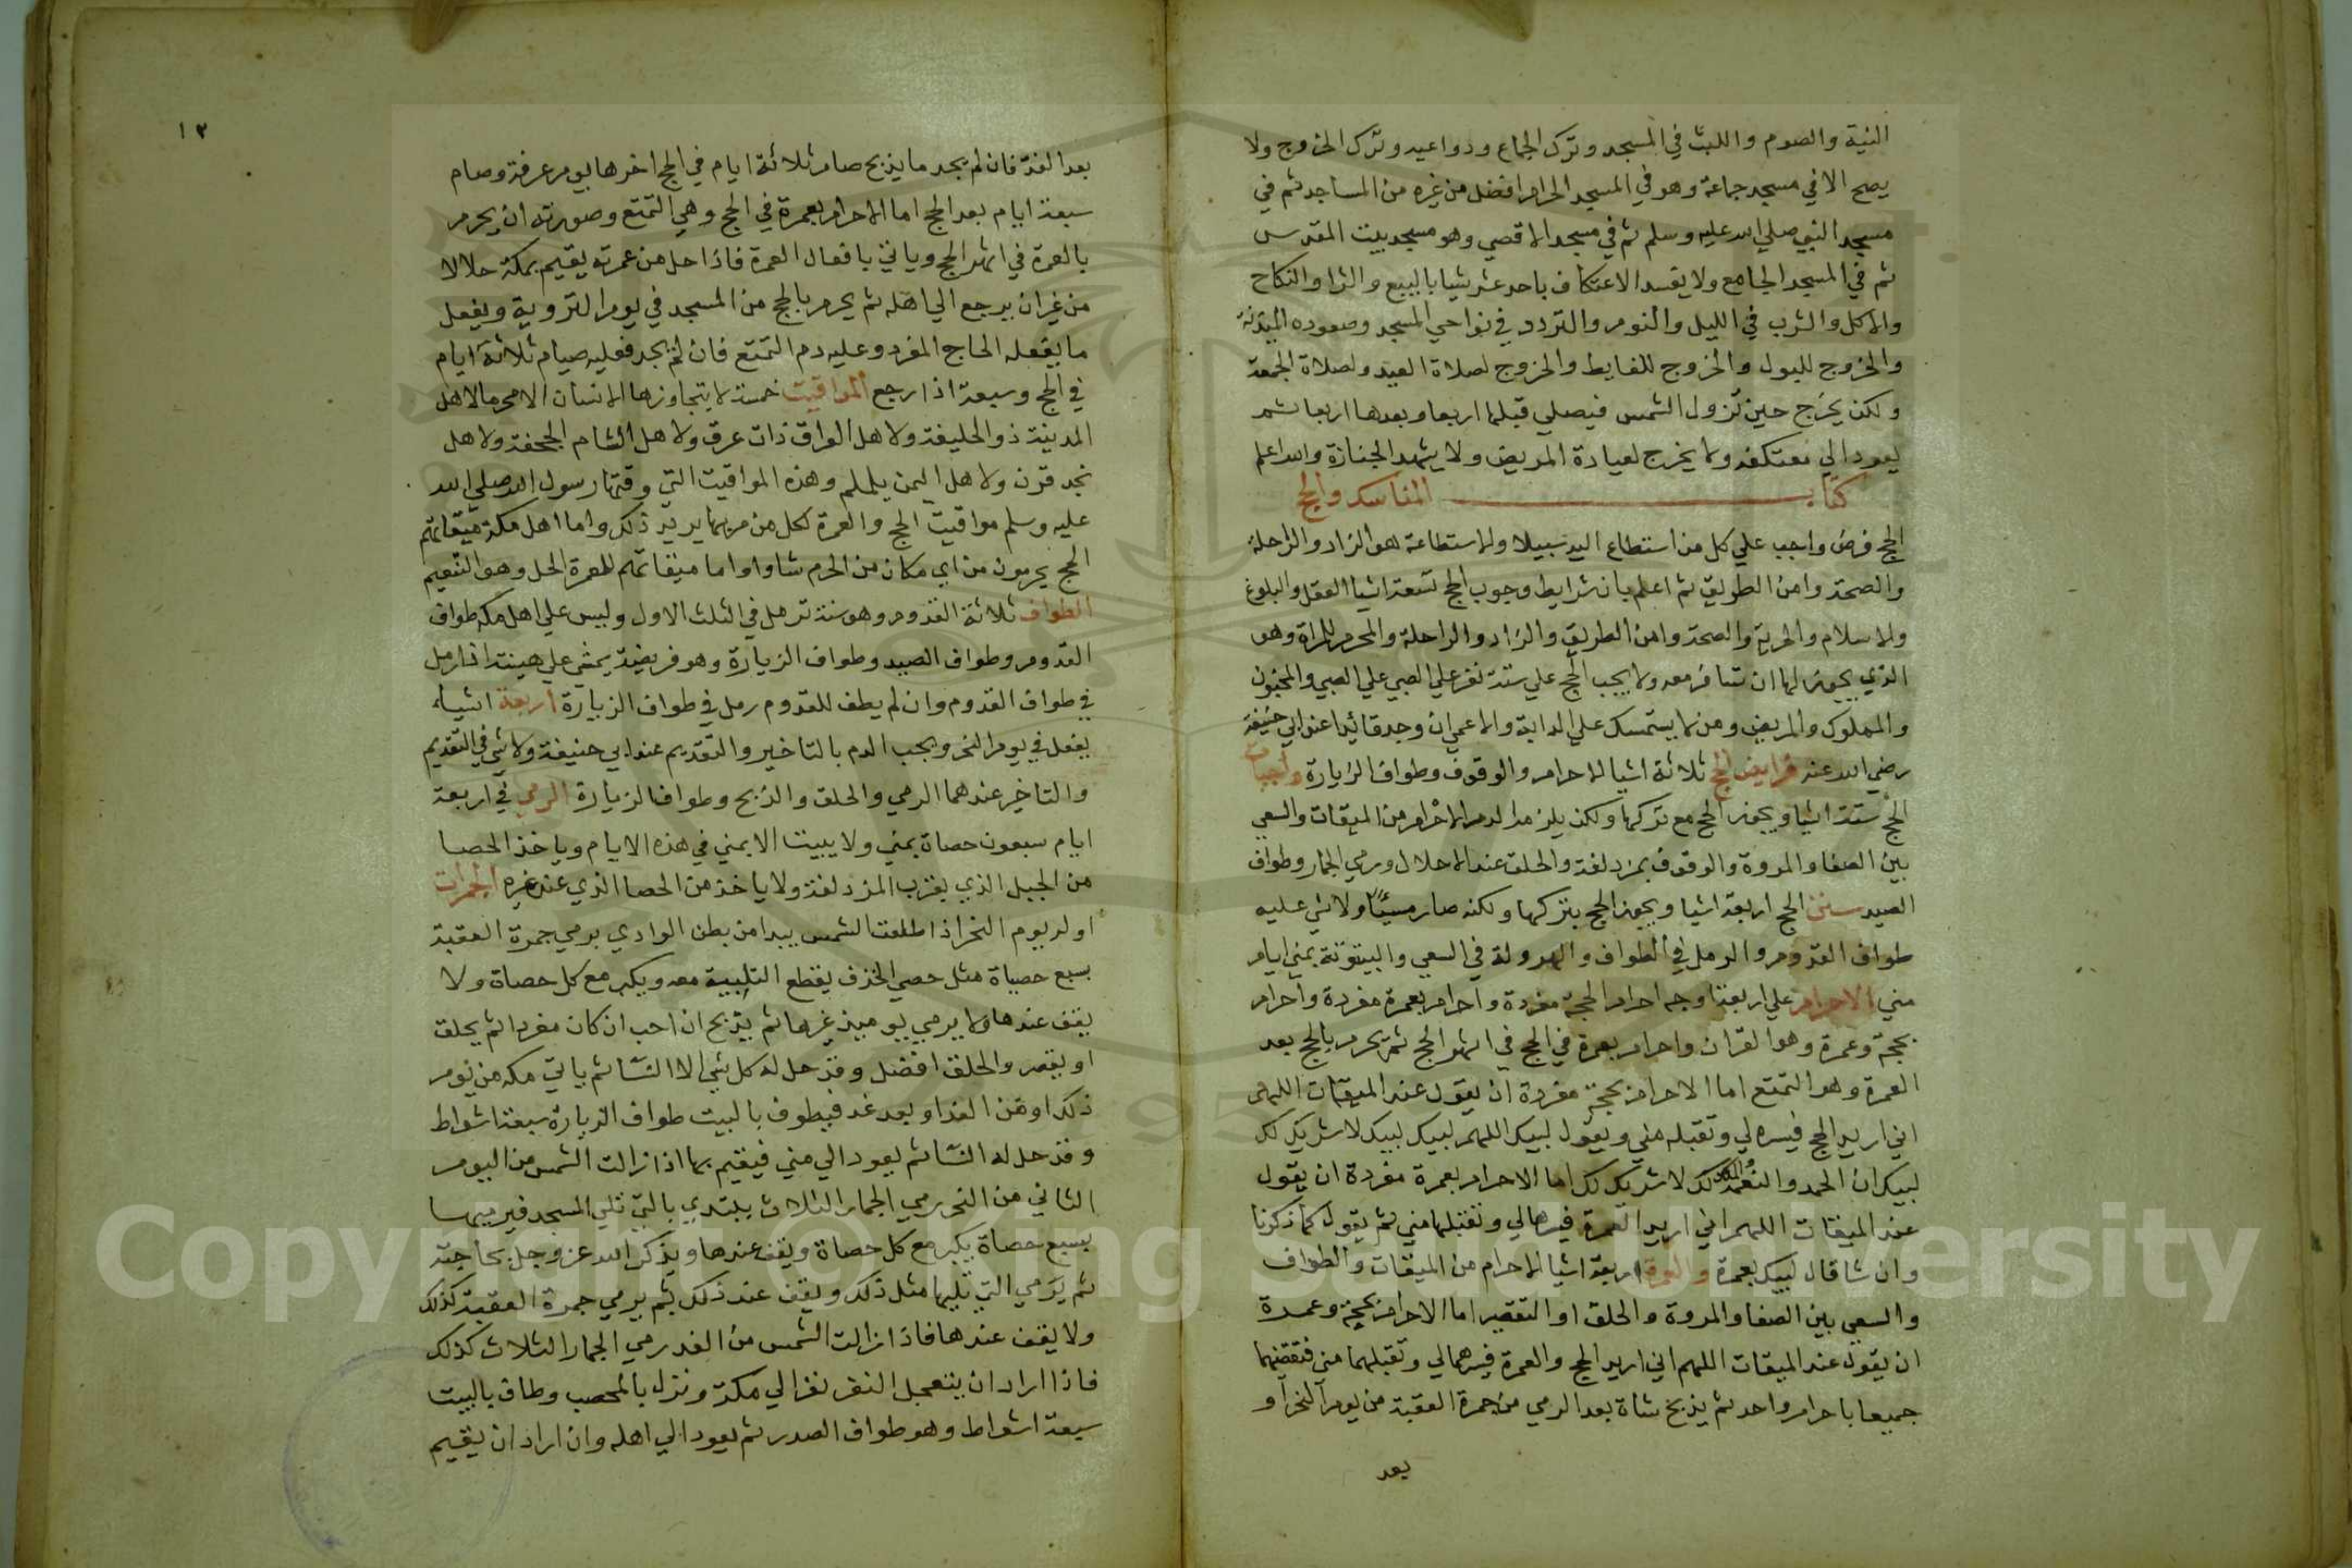 النية والصوم واللبث في المسجد وترك الجماع ودواعيه وترك الخروج ولا
يصح الا في مسجد جماعة وهو في المسجد الحرام افضل من غيره من المساجد ثم في
مسجد النبي صلي الله عليه وسلم ثم في مسجد الاقصي وهو مسجد بيت المقدس
ثم في المسجد الجامع ولا يفسد الاعتكاف باحد عشر شيا بالبيع والشرا والنكاح
والاكل والشرب في الليل والنوم والتردد في نواحي المسجد وصعوده المئذنة
والخروج للبول والخروج للغايط والخروج لصلاة العيد ولصلاة الجمعة
ولكن يخرج حين تزول الشمس فيصلي قبلها اربعا وبعدها اربعا ثم
يعود الي معتكفه ولا يخرج لعيادة المريض ولا يشهد الجنازة والله اعلم
كتاب المناسك والحج
الحج فرض واجب علي كل من استطاع اليه سبيلا والاستطاعة هو الزاد والراحلة
والصحة وامن الطريق ثم اعلم بان شرايط وجوب الحج تسعة اشيا العقل والبلوغ
والاسلام والحرية والصحة وامن الطريق والزاد والراحلة والمحرم للمراة وهو
الذي يجوز لها ان تسافر معه ولا يجب الحج علي ستة نفر علي الصبي علي الصبي والمجنون
والمملوك والمريض ومن لا يستمسك علي الدابة والاعمي ان وجد قائدا عند ابي حنيفة
رضي الله عنه فرايض الحج ثلاثة اشيا الاحرام والوقوف وطواف الزيارة واجبات
الحج ستة اشيا ويجوز الحج مع تركها ولكن يلزمه الدم الاحرام من الميقات والسعي
بين الصفا والمروة والوقوف بمزدلفة والحلق عند الاحلال ورمي الجمار وطواف
الصيد سنن الحج اربعة اشيا ويجوز الحج بتركها ولكنه صار مسيئا ولا شي عليه
طواف القدوم والرمل في الطواف والهرولة في السعي والبيتوتة بمني ايام
مني الاحرام علي اربعة اوجه احرام الحجة مفردة واحرام بعمرة مفردة واحرام
بحجة وعمرة وهو القران واحرام بعمرة في الحج في اشهر الحج ثم يحرم بالحج بعد
العمرة وهو التمتع اما الاحرام بحجة مفردة ان يقول عند الميقات اللهم
اني اريد الحج فيسره لي وتقبله مني ويقول لبيك اللهم لبيك لبيك لا شريك لك
لبيك ان الحمد والنعمة لك والملك لا شريك لك اما الاحرام بعمرة مفردة ان يقول
عند الميقات اللهم اني اريد العمرة فيسرها لي وتقبلها مني ثم يقول كما ذكرنا
وان شا قال لبيك بعمرة والعمرة اربعة اشيا الاحرام من الميقات والطواف
والسعي بين الصفا والمروة والحلق او التقصير اما الاحرام بحجة وعمرة
ان يقول عند الميقات اللهم اني اريد الحج والعمرة فيسرهما لي وتقبلهما مني فتقضيهما
جميعا باحرام واحد ثم يذبح شاة بعد الرمي من جمرة العقبة من يوم النحر او
بعد
١٢
بعد الغد فان لم يجد ما يذبح صام ثلاثة ايام في الحج اخرها يوم عرفة وصام
سبعة ايام بعد الحج اما الاحرام بعمرة في الحج وهي التمتع وصورته ان يحرم
بالعمرة في اشهر الحج وياتي بافعال العمرة فاذا حل من عمرته يقيم بمكة حلالا
من غير ان يرجع الي اهله ثم يحرم بالحج من المسجد في يوم التروية ويفعل
ما يفعله الحاج المفرد وعليه دم التمتع فان لم يجد فعليه صيام ثلاثة ايام
في الحج وسبعة اذا رجع المواقيت خمسة لا يتجاوزها الانسان الا محرما لاهل
المدينة ذو الحليفة ولاهل العراق ذات عرق ولاهل الشام الجحفة ولاهل
نجد قرن ولاهل اليمن يلملم وهذه المواقيت التي وقتها رسول الله صلي الله
عليه وسلم مواقيت الحج والعمرة لكل من مر بها يريد ذلك واما اهل مكة ميقاتهم
الحج يحرمون من اي مكان من الحرم شاوا واما ميقاتهم للعمرة الحل وهو التنعيم
الطواف ثلاثة القدوم وهو سنة ترمل في الثلث الاول وليس علي اهل مكه طواف
القدوم وطواف الصيد وطواف الزيارة وهو فريضة يمشي علي هينته اذا رمل
في طواف القدوم وان لم يطف للقدوم رمل في طواف الزيارة اربعة اشياء
يفعل في يوم النحر ويجب الدم بالتاخير والتقديم عند ابي حنيفة ولا شي في التقديم
والتاخير عندهما الرمي والحلق والذبح وطواف الزيارة الرمي في اربعة
ايام سبعون حصاة بمني ولا يبيت الا بمني في هذه الايام وياخذ الحصا
من الجبل الذي يقرب المزدلفة ولا ياخذ من الحصا الذي عند غيره الجمرات
اول يوم النحر اذا طلعت الشمس يبدا من بطن الوادي برمي جمرة العقبة
بسبع حصياة مثل حصي الخذف يقطع التلبية معه ويكبر مع كل حصاة ولا
يقف عندها ولا يرمي يوميذ غيرها ثم يذبح ان احب ان كان مفردا ثم يحلق
او يقصر والحلق افضل وقد حل له كل شي الا النسا ثم ياتي مكه من يوم
ذلك او من الغد او بعد غد فيطوف بالبيت طواف الزيارة سبعة اشواط
وقد حل له النسا ثم يعود الي مني فيقيم بها اذا زالت الشمس من اليوم
الثاني من النحر رمي الجمار الثلاث يبتدي بالتي تلي المسجد فيرميها
بسبع حصاة يكبر مع كل حصاة ويقف عندها ويذكر الله عز وجل بحاجته
ثم يرمي التي تليها مثل ذلك ويقف عند ذلك ثم يرمي جمرة العقبة كذلك
ولا يقف عندها فاذا زالت الشمس من الغد رمي الجمار الثلاث كذلك
فاذا اراد ان يتعجل النفر نفر الي مكة ونزل بالمحصب وطاف بالبيت
سبعة اشواط وهو طواف الصدر ثم يعود الي اهله وان اراد ان يقيم
Copyright © King Saud University